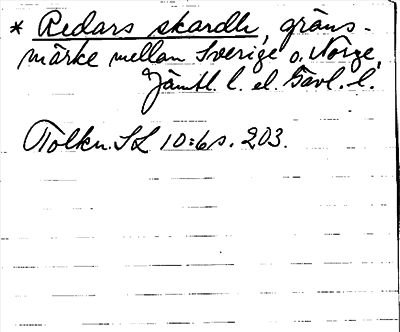 * Redars skardh, gräns-
märke mellan Sverige o. Norge,
Jämtl. l. el. Gävl. l.
Tolkn. SL 10:6 s. 203.